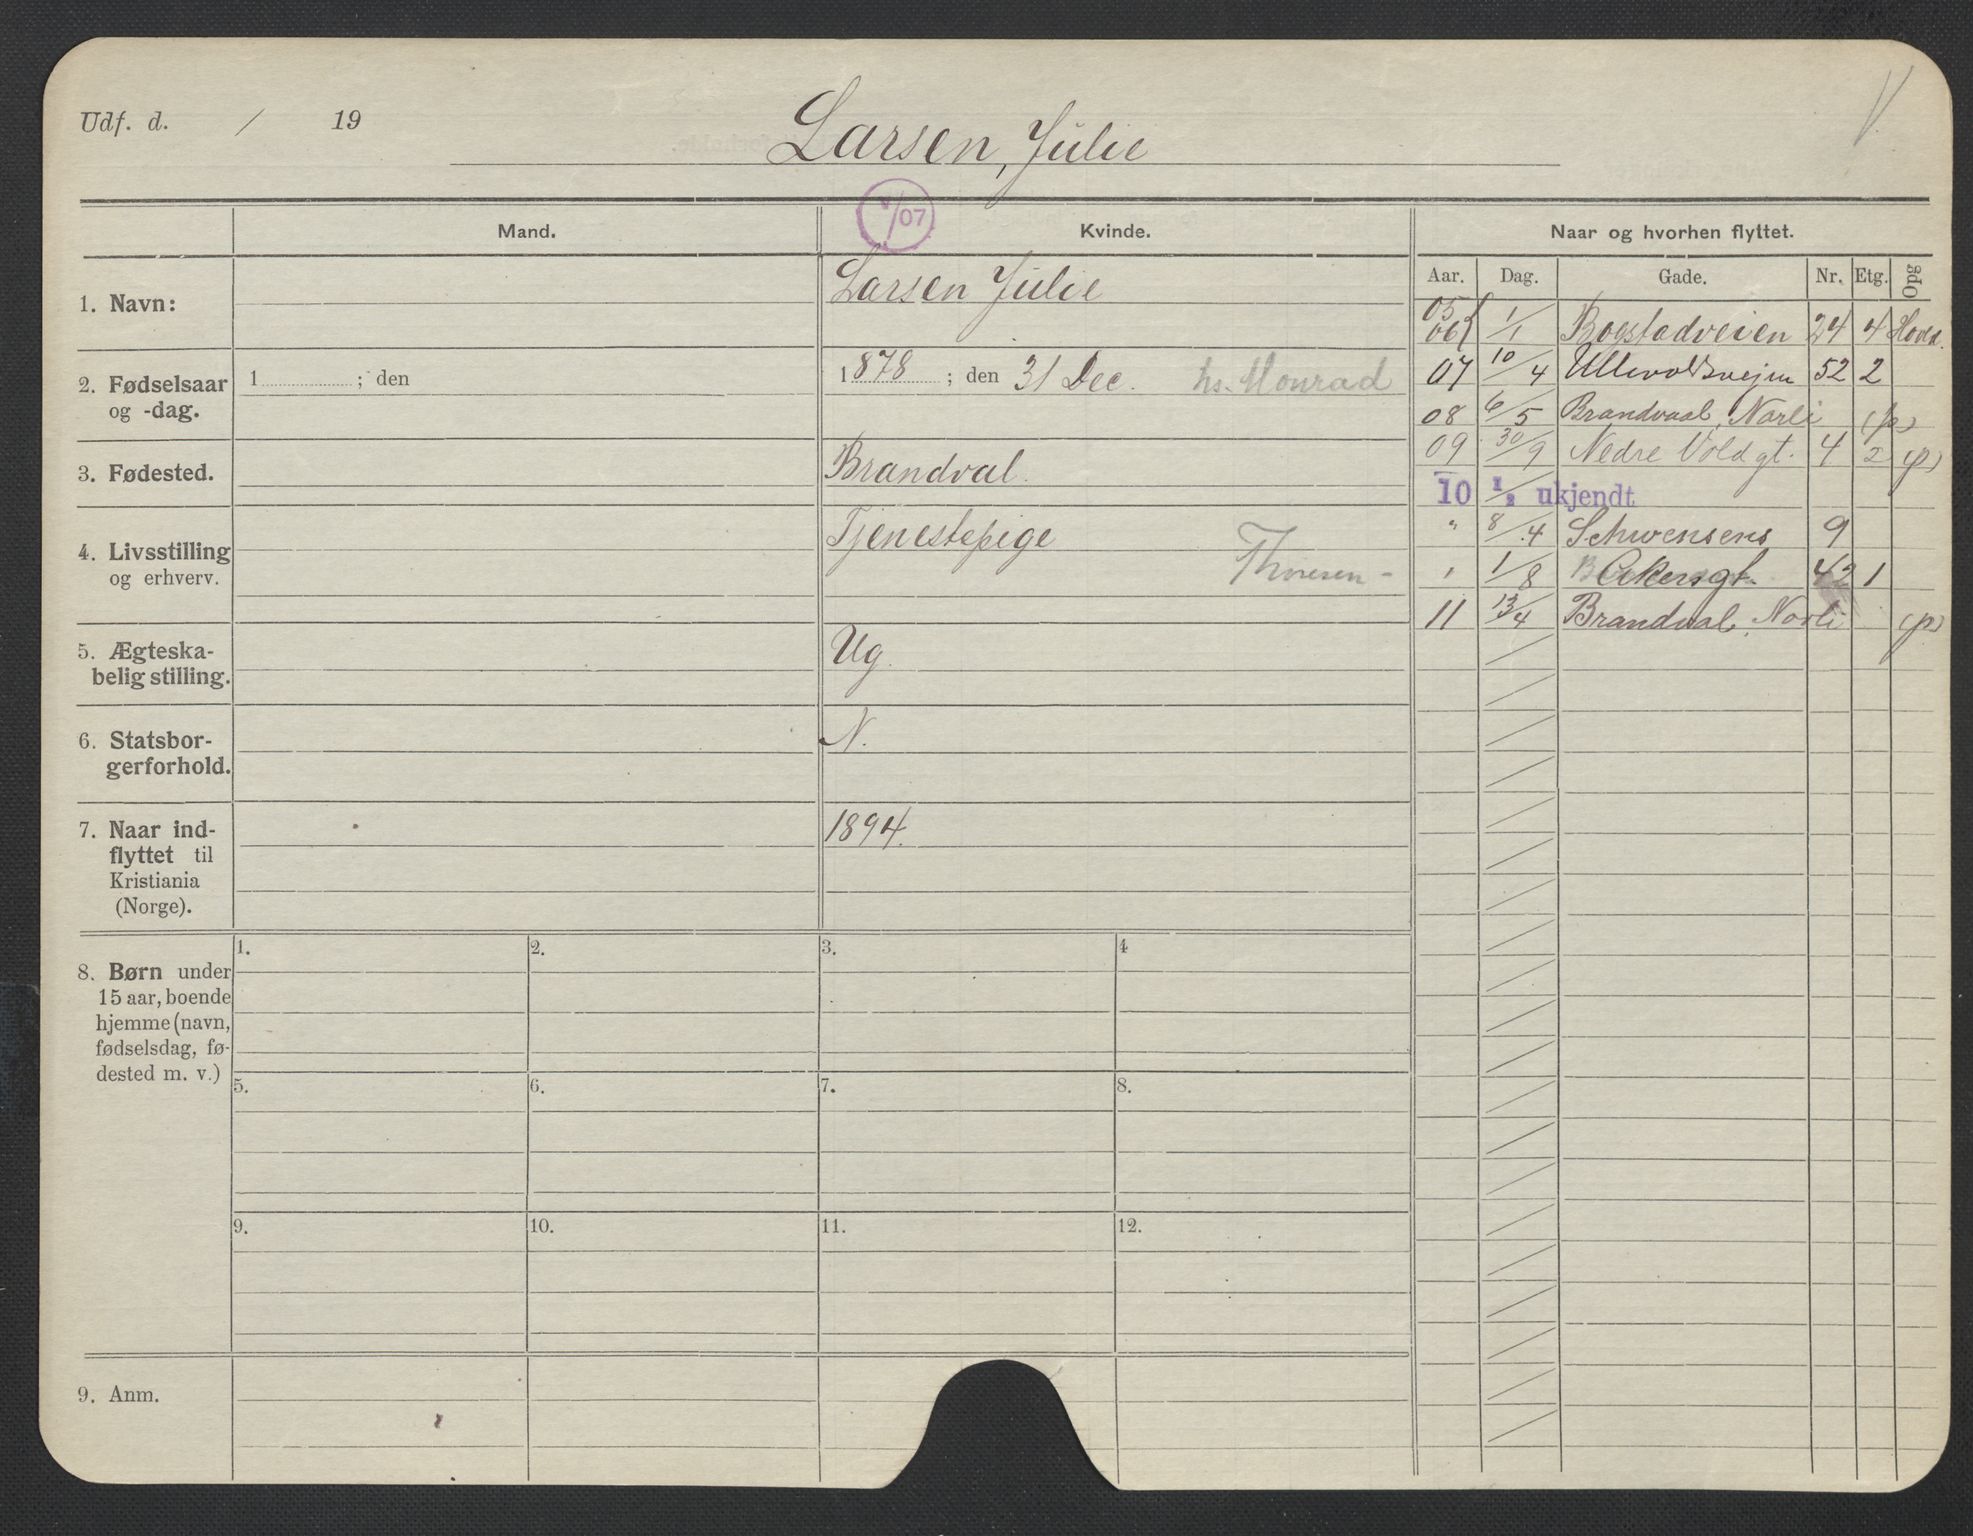 Udf. d. / 19
Larsen, Julie
V
V/07
Mand.
Kvinde.
Naar og hvorhen flyttet.
Aar. Dag. Gade. Nr. Etg. Opg
1. Navn:
Larsen Julie
2. Fødselsaar
og -dag.
1 ; den
1878 ; den 31 Dec. hs. Monrad
3. Fødested.
Brandval.
4. Livsstilling
og erhverv.
Tjenestepige
Thoresen -
5. Ægteska-
belig stilling.
Ug.
6. Statsbor-
gerforhold.
N.
7. Naar ind-
flyttet til
Kristiania
(Norge).
1894.
05
06 1/1 Bogstadveien 24 4
07 10/4 Ullevoldsvejen 52 2
08 6/5 Brandvaal, Norli (p)
09 30/9 Nedre Voldgt. 4 2 (p)
10 1/2 ukjendt
" 8/4 Schwensens 9
" 1/8 Akersgt. 42 1
11 13/4 Brandval, Norli (p)
8. Børn under
15 aar, boende
hjemme (navn,
fødselsdag, fø-
dested m. v.)
1. 2. 3. 4
5. 6. 7. 8.
9. 10. 11. 12.
9. Anm.